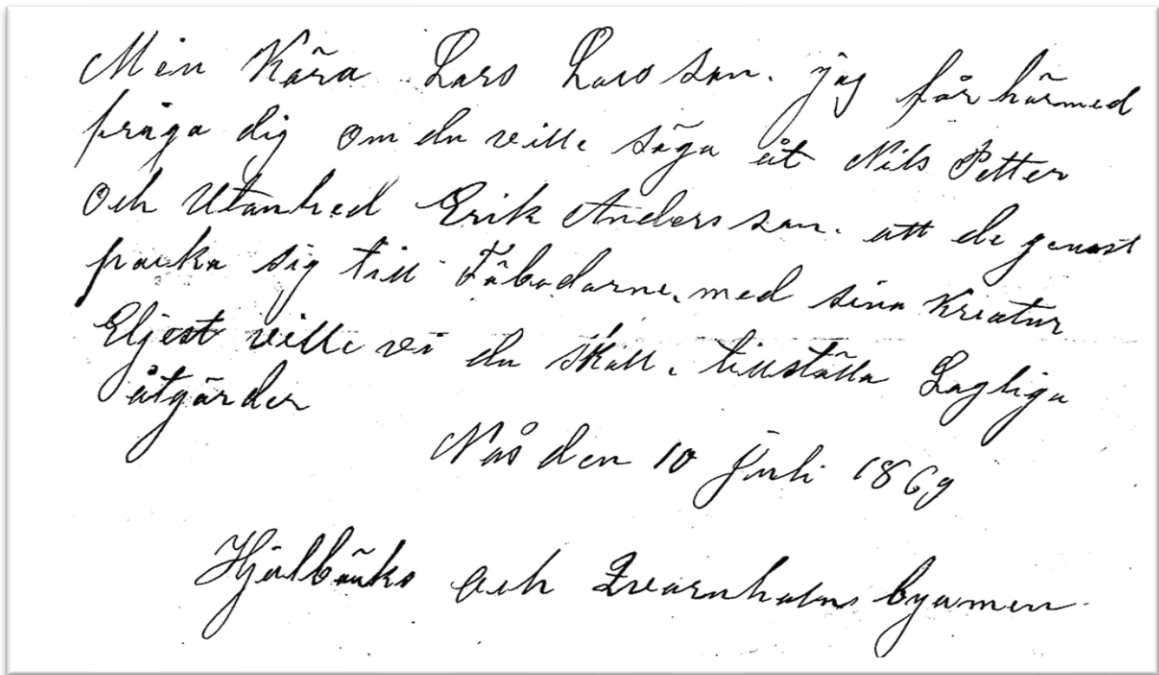 Min Kära Lars Larsson. jag får härmed
fråga dig om du ville säga åt Nils Petter
Och Utanhed Erik Andersson. att de genast
packa sig till Fäbodarne, med sina Kreatur
Eljest ville vi du skall, tillställa Lagliga
åtgärder
Nås den 10 Juli 1869
Hjulbäks och Qvarnholns byamen